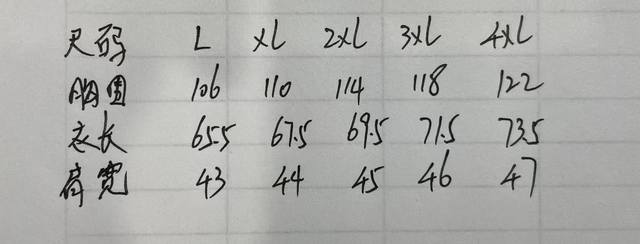 尺码 L XL 2XL 3XL 4XL
胸围 106 110 114 118 122
衣长 65.5 67.5 69.5 71.5 73.5
肩宽 43 44 45 46 47